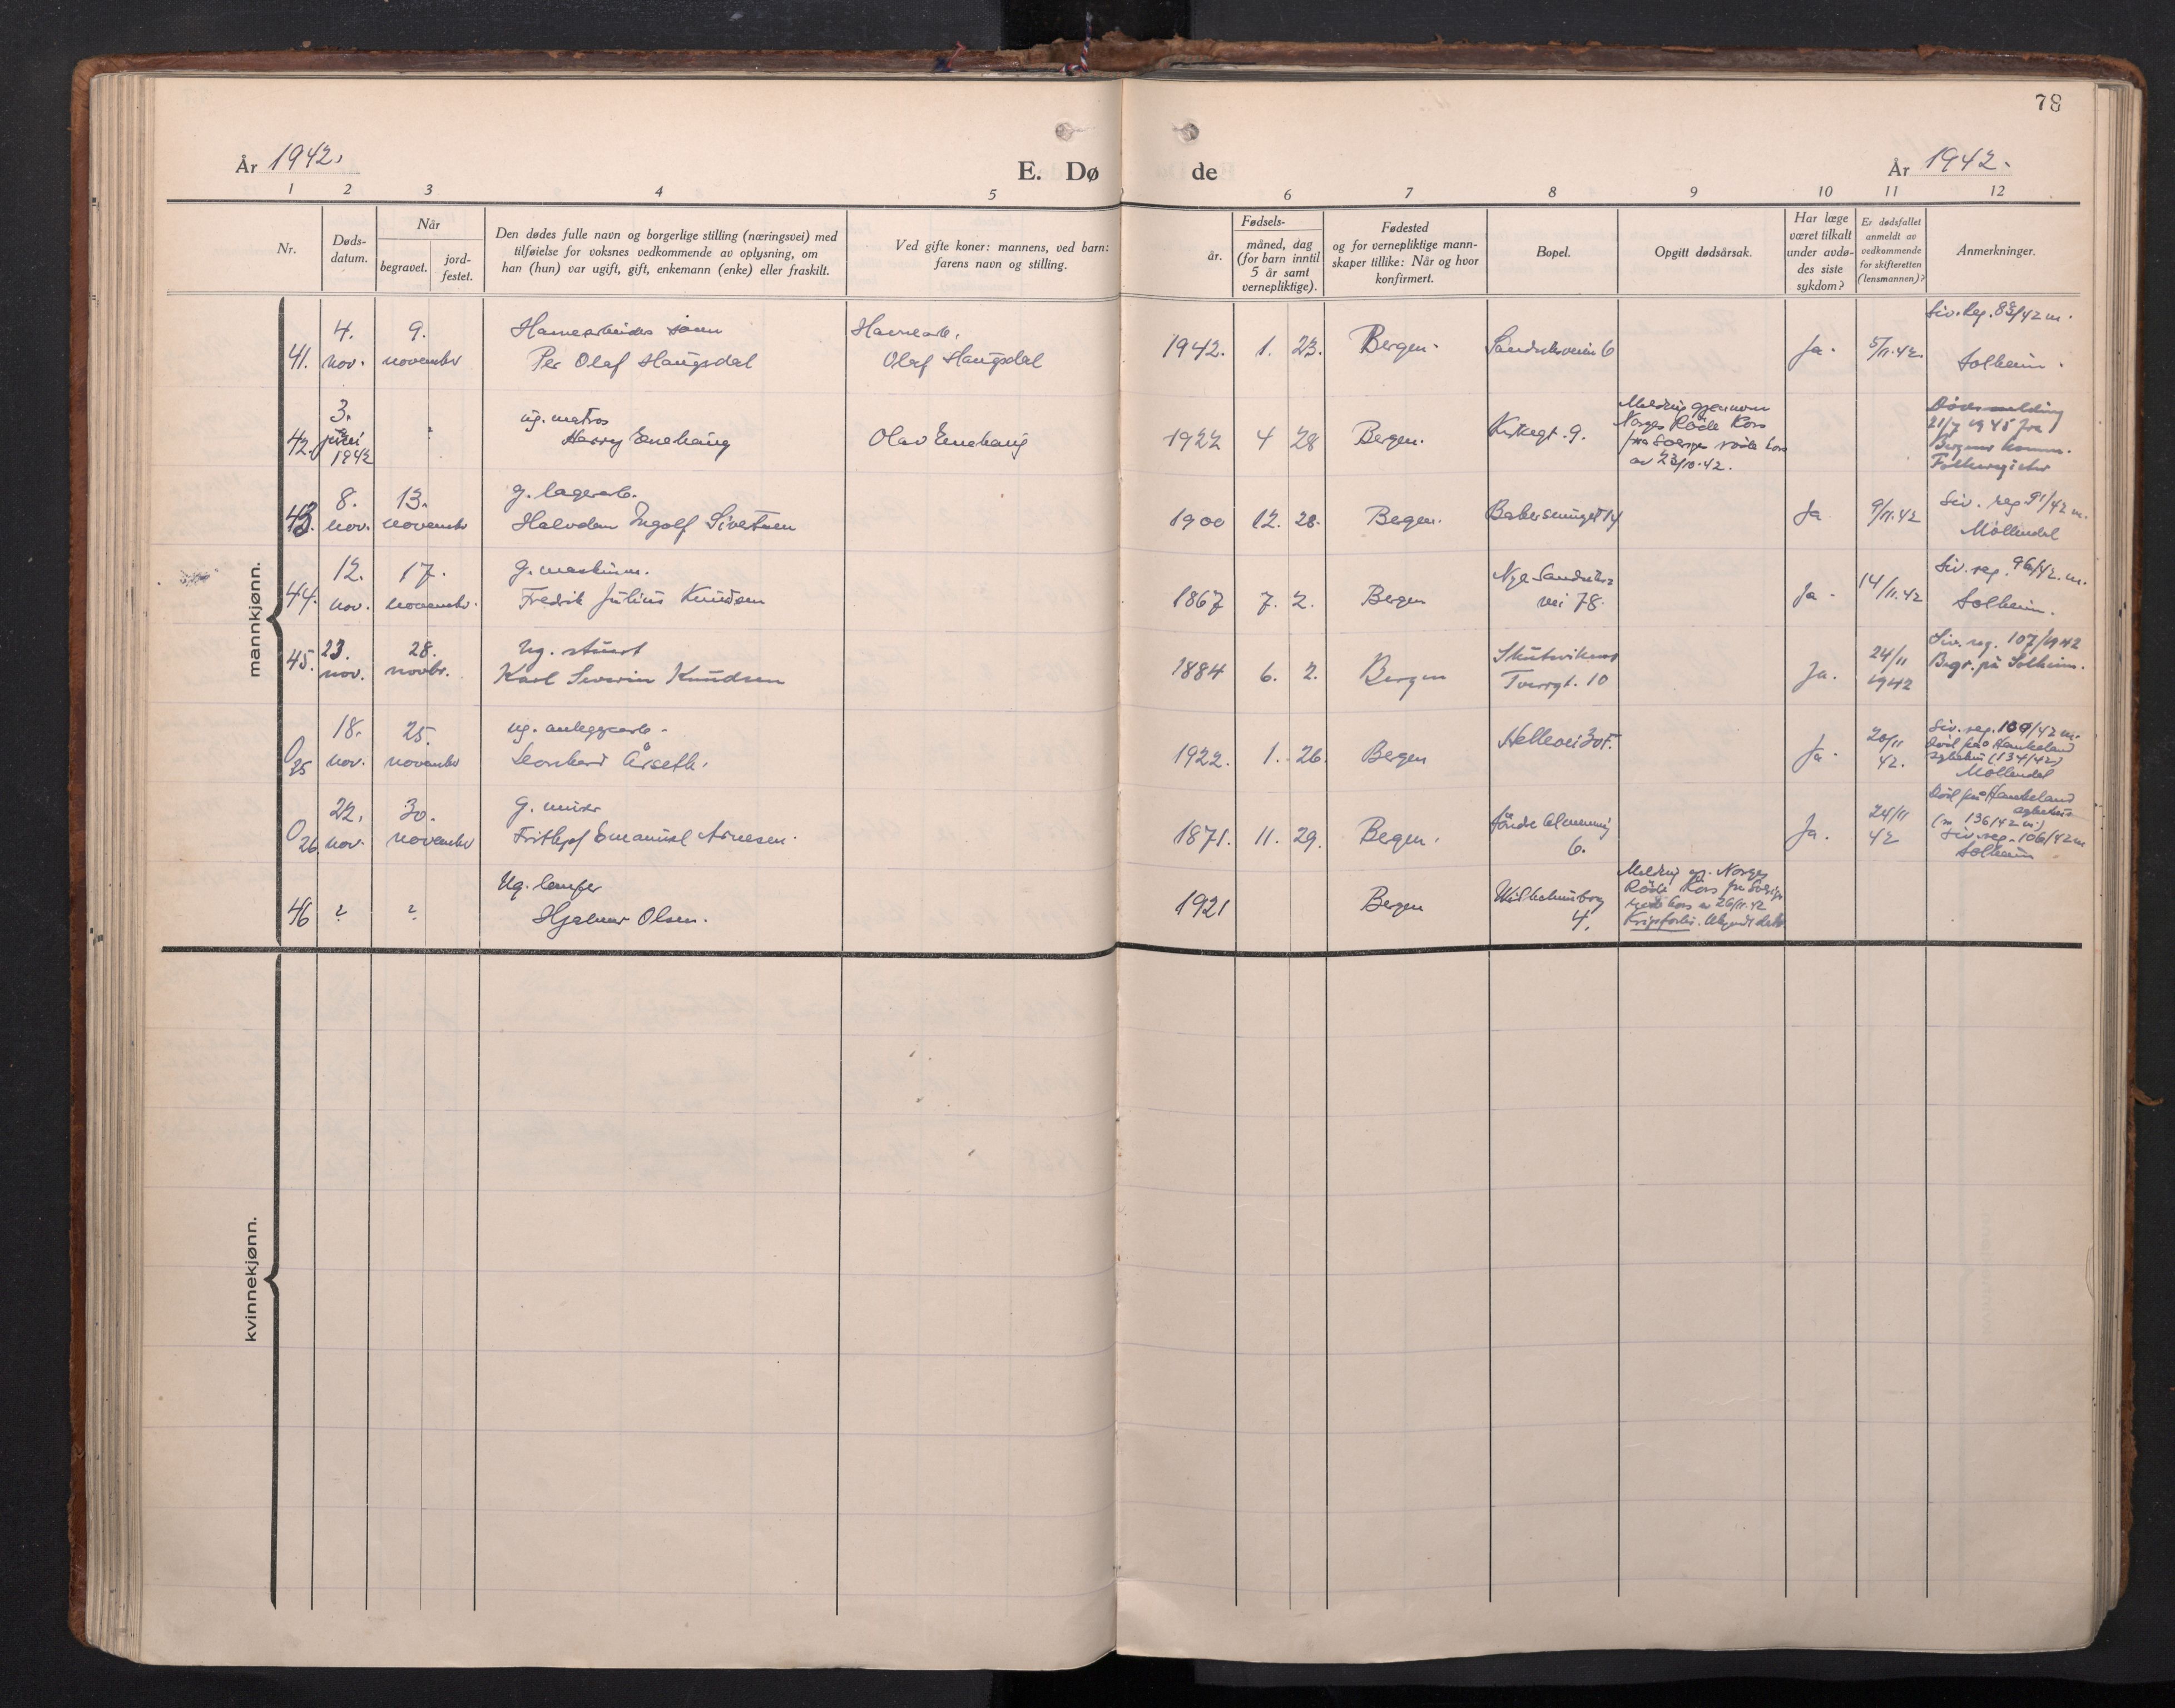 78
År 1942.
E. Dø de
År 1942.
1 2 3 4 5 6 7 8 9 10 11 12
Nr.
Døds-
datum.
Når
begravet.
jord-
festet.
Den dødes fulle navn og borgerlige stilling (næringsvei) med
tilføielse for voksnes vedkommende av oplysning, om
han (hun) var ugift, gift, enkemann (enke) eller fraskilt.
Ved gifte koner: mannens, ved barn:
farens navn og stilling.
Fødsels-
år.
måned, dag
(for barn inntil
5 år samt
vernepliktige).
Fødested
og for vernepliktige mann-
skaper tillike: Når og hvor
konfirmert.
Bopel.
Opgitt dødsårsak.
Har læge
været tilkalt
under avdø-
des siste
sykdom?
Er dødsfallet
anmeldt av
vedkommende
for skifteretten
(lensmannen)?
Anmerkninger.
mannkjønn.
4. 9. Havnearbeiders sønn Havnearb. Siv. reg. 83/42 m.
41. nov. november Per Olaf Haugsdal Olaf Haugsdal 1942. 1. 23. Bergen. Sandviksveien 6 Ja. 5/11.42 Solheim.
3. ug. matros Melding gjennom Dødsmelding
42. juni ? Harry Enehaug Olav Enehaug 1922 4 28 Bergen. Kirkegt. 9. Norges Røde Kors 21/7 1945 fra
1942 fra Sverige røde kors Bergens komm.
av 23/10.42. Folkeregister
8. 13. g. lagerarb. Siv. reg. 91/42 m.
43. nov. november Halvdan Ingolf Sivertsen 1900 12. 28. Bergen. 14 Ja 9/11.42 Møllendal
12. 17. g. maskinm. Nye Sandviks- Siv. reg. 96/42. m.
44. nov. november. Fredrik Julius Knudsen 1867 7. 2. Bergen vei 78. Ja. 14/11.42 Solheim.
23. 28. Ug. stuert Skutevikens 24/11 Siv. reg. 107/1942
45. nov. novbr. Karl Severin Knudsen 1884 6. 2. Bergen Tverrgt. 10 Ja. 1942 Begr. på Solheim.
18. 25. ug. anleggsarb. Siv. reg. 100/42 m.
O 25 nov. november Leonhard Årseth. 1922. 1. 26. Bergen Hellevei 30 F. Ja. 20/11 42. Død på Haukeland
sykehus (134/42)
Møllendal
22. 30. g. murer Død på Haukeland
sykehus
O 26. nov. november Frithjof Emanuel Arnesen. 1871. 11. 29. Bergen. Søndre almenning 6. Ja. 24/11 42 (m 136/42 m.)
Siv. reg. 106/42 m
Solheim
Ug. lemper Melding gj. Norges
46 ? ? Hjalmar Olsen. 1921 Bergen Wilhelmsborg 4. Røde Kors fra Sverige
røde kors av 26/11.42
Krigsforlis.
kvinnekjønn.